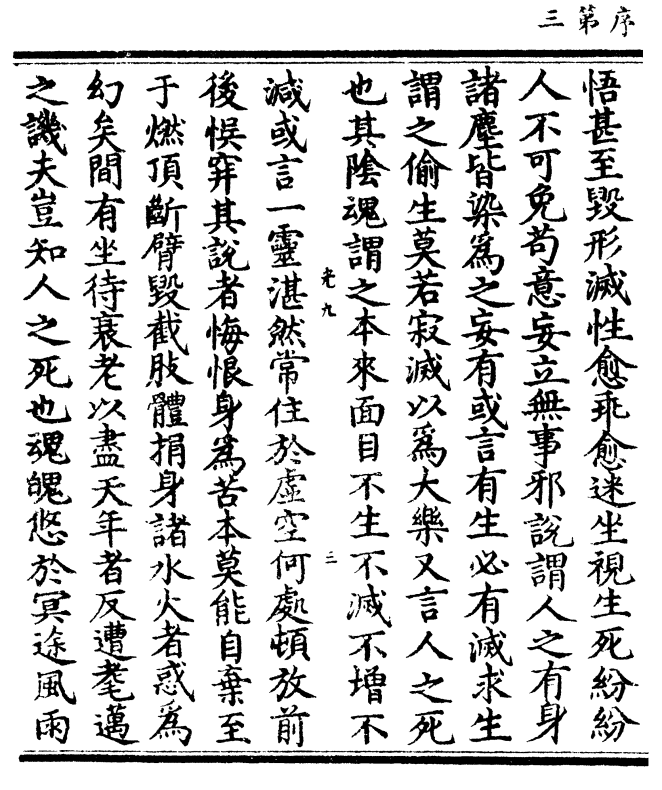 序第三
悟甚至毀形滅性愈乖愈迷坐視生死紛紛
人不可免苟意妄立無事邪說謂人之有身
諸塵皆染為之妄有或言有生必有滅求生
謂之偷生莫若寂滅以為大樂又言人之死
也其陰魂謂之本來面目不生不滅不增不
光九
三
減或言一靈湛然常住於虛空何處頓放前
後悮穽其說者悔恨身為苦本莫能自棄至
于燃頂斷臂毀截肢體捐身諸水火者惑為
幻矣間有坐待衰老以盡天年者反遭耄邁
之譏夫豈知人之死也魂魄悠於冥途風雨